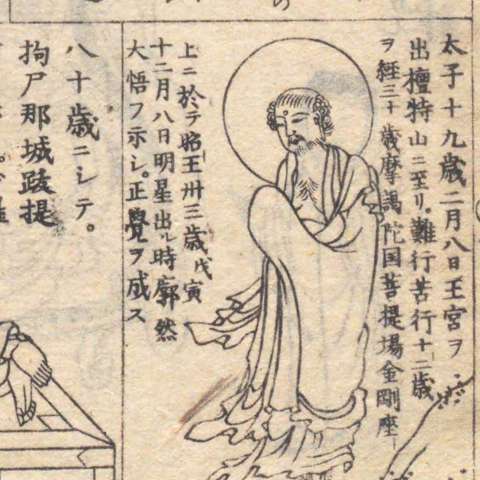 太子十九歳二月八日王宮ヲ
出檀特山ニ至リ。難行苦行十二歳
ヲ經三十歳摩謁陀国菩提場金剛座ノ
上ニ於テ昭王卅三歳戊寅
十二月八日明星出ル時廓然
大悟フ示シ。正覺ヲ成ス
八十歳ニシテ。
拘尸那城跋提